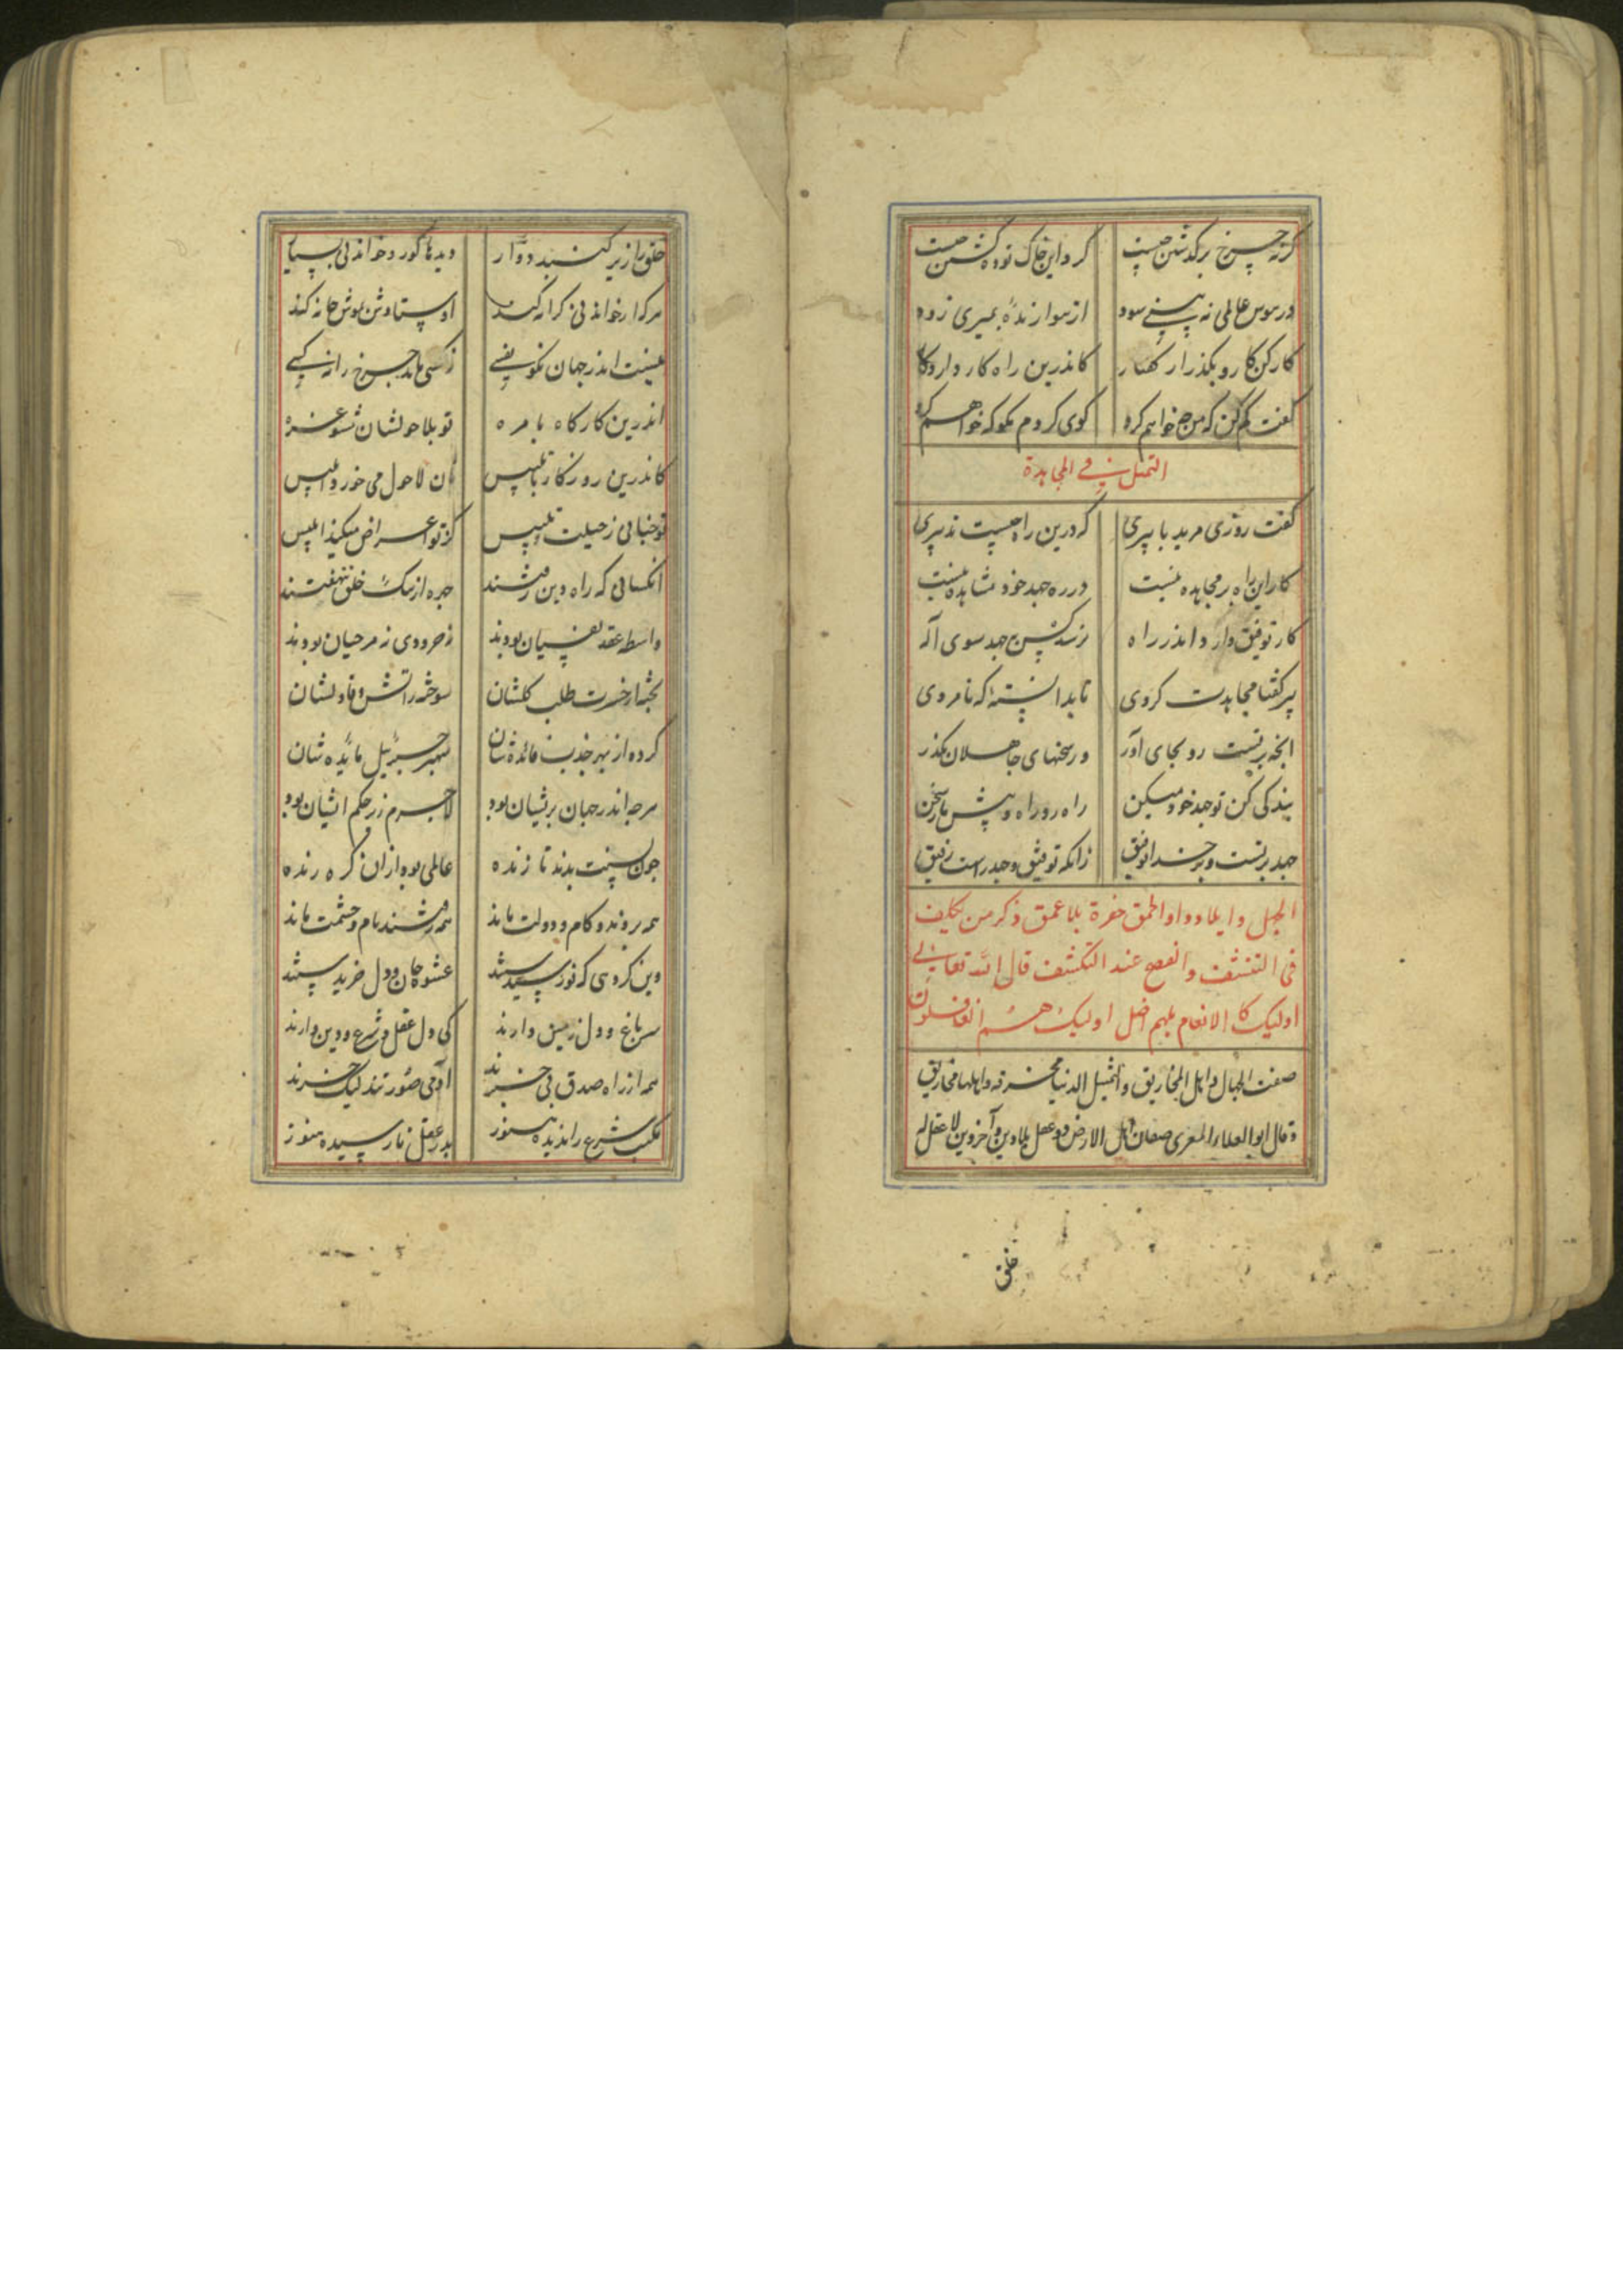 گرنه چرخ برگذشتن چیست
گرد این خاک توده گشتن چیست
در هوس عالمی نه بینی سود
از هوا زنده بمیری زود
کار کن کار و بگذر از گفتار
کاندرین راه کار دارد کار
گفت کم کن که من چه خواهم کرد
گوی کردم مگو که خواهم کرد
التمثیل فی المجاهدة
گفت روزی مرید با پیری
که درین راه چیست تدبیری
کار این راه بر مجاهده نیست
در ره جهد خود مشاهده نیست
کار توفیق دارد اندر راه
نرسد کس بجهد سوی اله
پیر گفتا مجاهدت کردی
تا بدانسته که نامردی
آنچه بر تست رو بجای آور
ور سخنهای جاهلان بگذر
بندگی کن تو جهد خود میکن
راه رو راه و پیش مار سخن
جهد بر تست و بر خدا توفیق
زانکه توفیق و جهد راست رفیق
الجهل وایلاده والحمق حفرة بلا عمق ذکر من تکلیف
فی التقشف والفصح عند التکشف قال الله تعالی
اولیک کالانعام بلهم اضل اولیک هم الغافلون
صفت الجهال و اهل المخاریق والتمثیل الدنیا مخرقه و اهلها مخاریق
وقال ابو العلاء المعری صنفان اهل الارض ذو عقل بلا دین و آخر دین لا عقل له
خلق
خلق را زیر گنبد دوار
دیدها کور و خواندنی بسیار
هرکرا خواندنی کرانه کند
اوستادش بوش خانه کند
نیست اندر جهان نکو نفسی
نرکسی ماند چرخ را نه کسی
اندرین کارگاه با مره
تو بلا حولشان شو غره
کاندرین روزگار تلبیس
نان لاحول می خورد ابلیس
تو خیالی ز حیلت تلبیس
کز تو اعراض میکند ابلیس
آنکسانی که راه دین رفتند
چهره از ننگ خلق بنهفتند
واسطه عقد نفسیان بودند
نه حرودی نه مرحیان بودند
پخته از حسرت طلب گلشان
سوخته ز آتش وفا دلشان
کرده از بهر جذب فائده شان
شهپر جبرئیل مائده شان
هرچه اندر جهان بریشان بود
لاجرم زیر حکم ایشان بود
چون بسنت بدند تا زنده
عالمی بود از آن گره زنده
همه رفتند و کام و دولت ماند
همه رفتند نام و حشمت ماند
وین گروهی که نو رسیدستند
عشوه جان و دل خریدستند
سر باغ و دل زمین دارند
کی دل عقل و شرع و دین دارند
همه از راه صدق بی خبرند
آدمی صورتند لیک خرند
مکتب شرع را ندیده هنوز
بدر عقل نارسیده هنوز